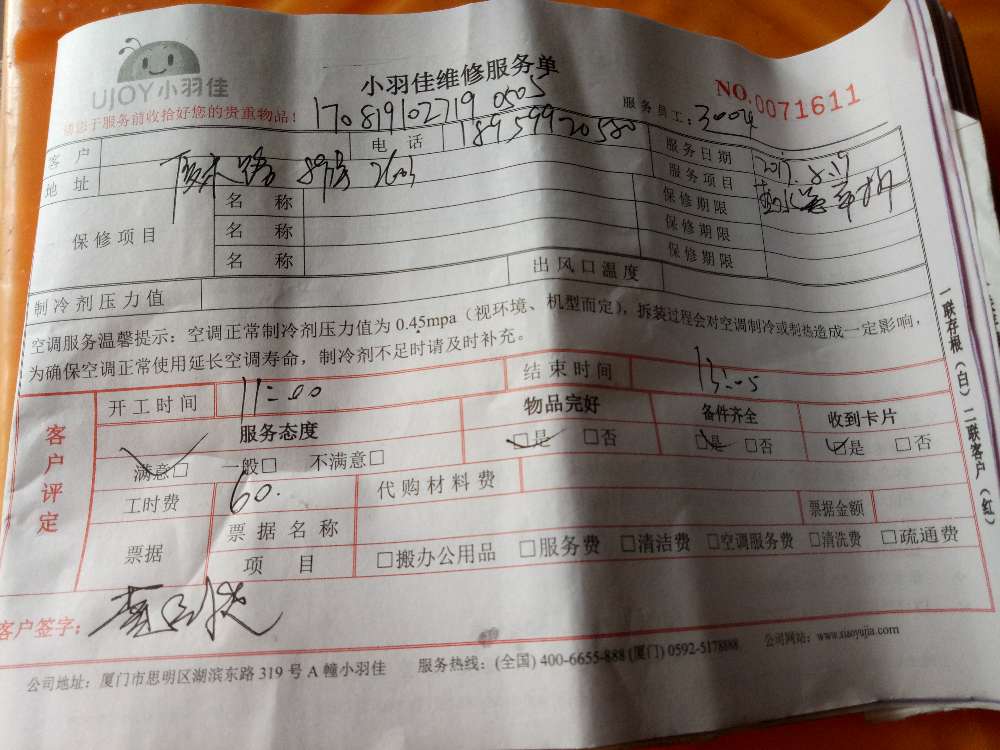 UJOY小羽佳
小羽佳维修服务单
NO.0071611
请您于服务前收拾好您的贵重物品!
170819102719 0505
服务员工: 3004
客户 电话 18959920580 服务日期 2017.8.19
地址 路 2603 服务项目
保修项目 名称 保修期限
名称 保修期限
名称 保修期限
制冷剂压力值 出风口温度
空调服务温馨提示: 空调正常制冷剂压力值为 0.45mpa (视环境、机型而定), 拆装过程会对空调制冷或制热造成一定影响,
为确保空调正常使用延长空调寿命, 制冷剂不足时请及时补充。
客户评定
开工时间 11:00 结束时间 13:05
服务态度 物品完好 备件齐全 收到卡片
满意□ 一般□ 不满意□ □是 □否 □是 □否 □是 □否
工时费 60. 代购材料费
票据 票据名称 票据金额
项目 □搬办公用品 □服务费 □清洁费 □空调服务费 □清洗费 □疏通费
客户签字:
公司地址: 厦门市思明区湖滨东路 319 号 A 幢小羽佳 服务热线: (全国) 400-6655-888 (厦门) 0592-5178888 公司网站: www.xiaoyujia.com
一联存根(白) 二联客户(红)